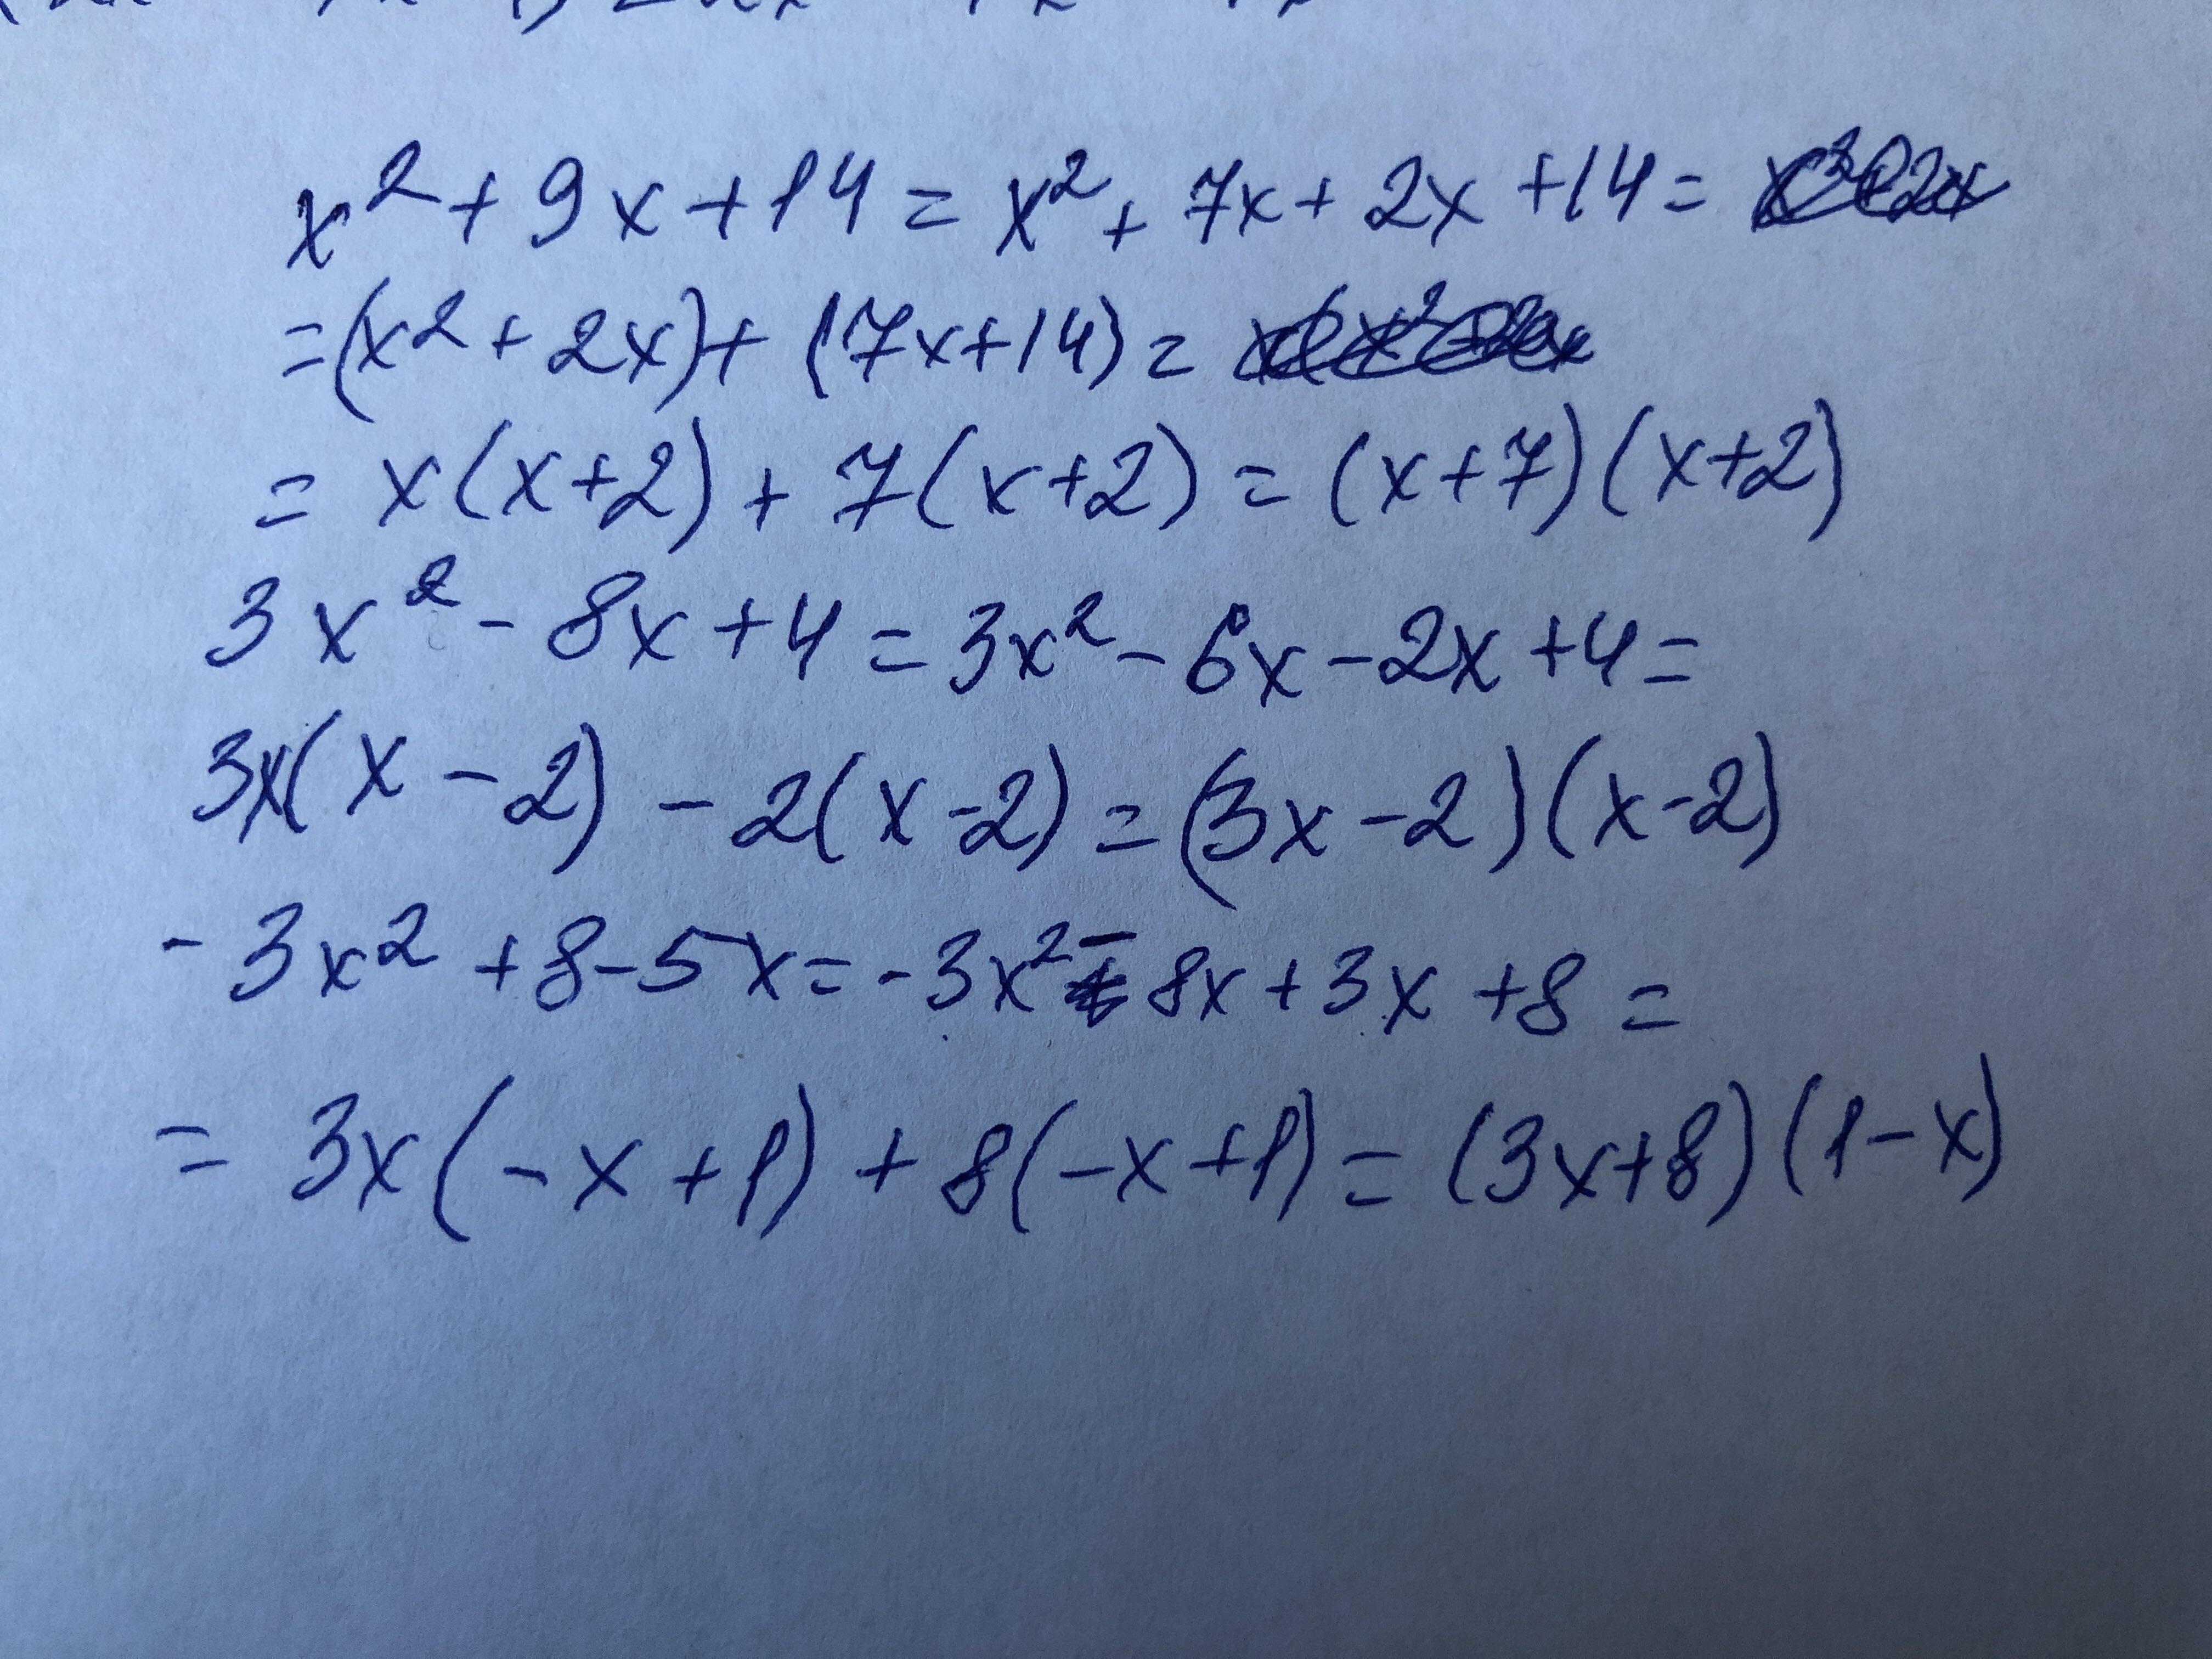 x² + 9x + 14 = x² + 7x + 2x + 14 =
= (x² + 2x) + (7x + 14) =
= x(x+2) + 7(x+2) = (x+7)(x+2)
3x² - 8x + 4 = 3x² - 6x - 2x + 4 =
3x(x - 2) - 2(x - 2) = (3x - 2)(x - 2)
- 3x² + 8 - 5x = - 3x² - 8x + 3x + 8 =
= 3x(-x + 1) + 8(-x + 1) = (3x + 8)(1 - x)